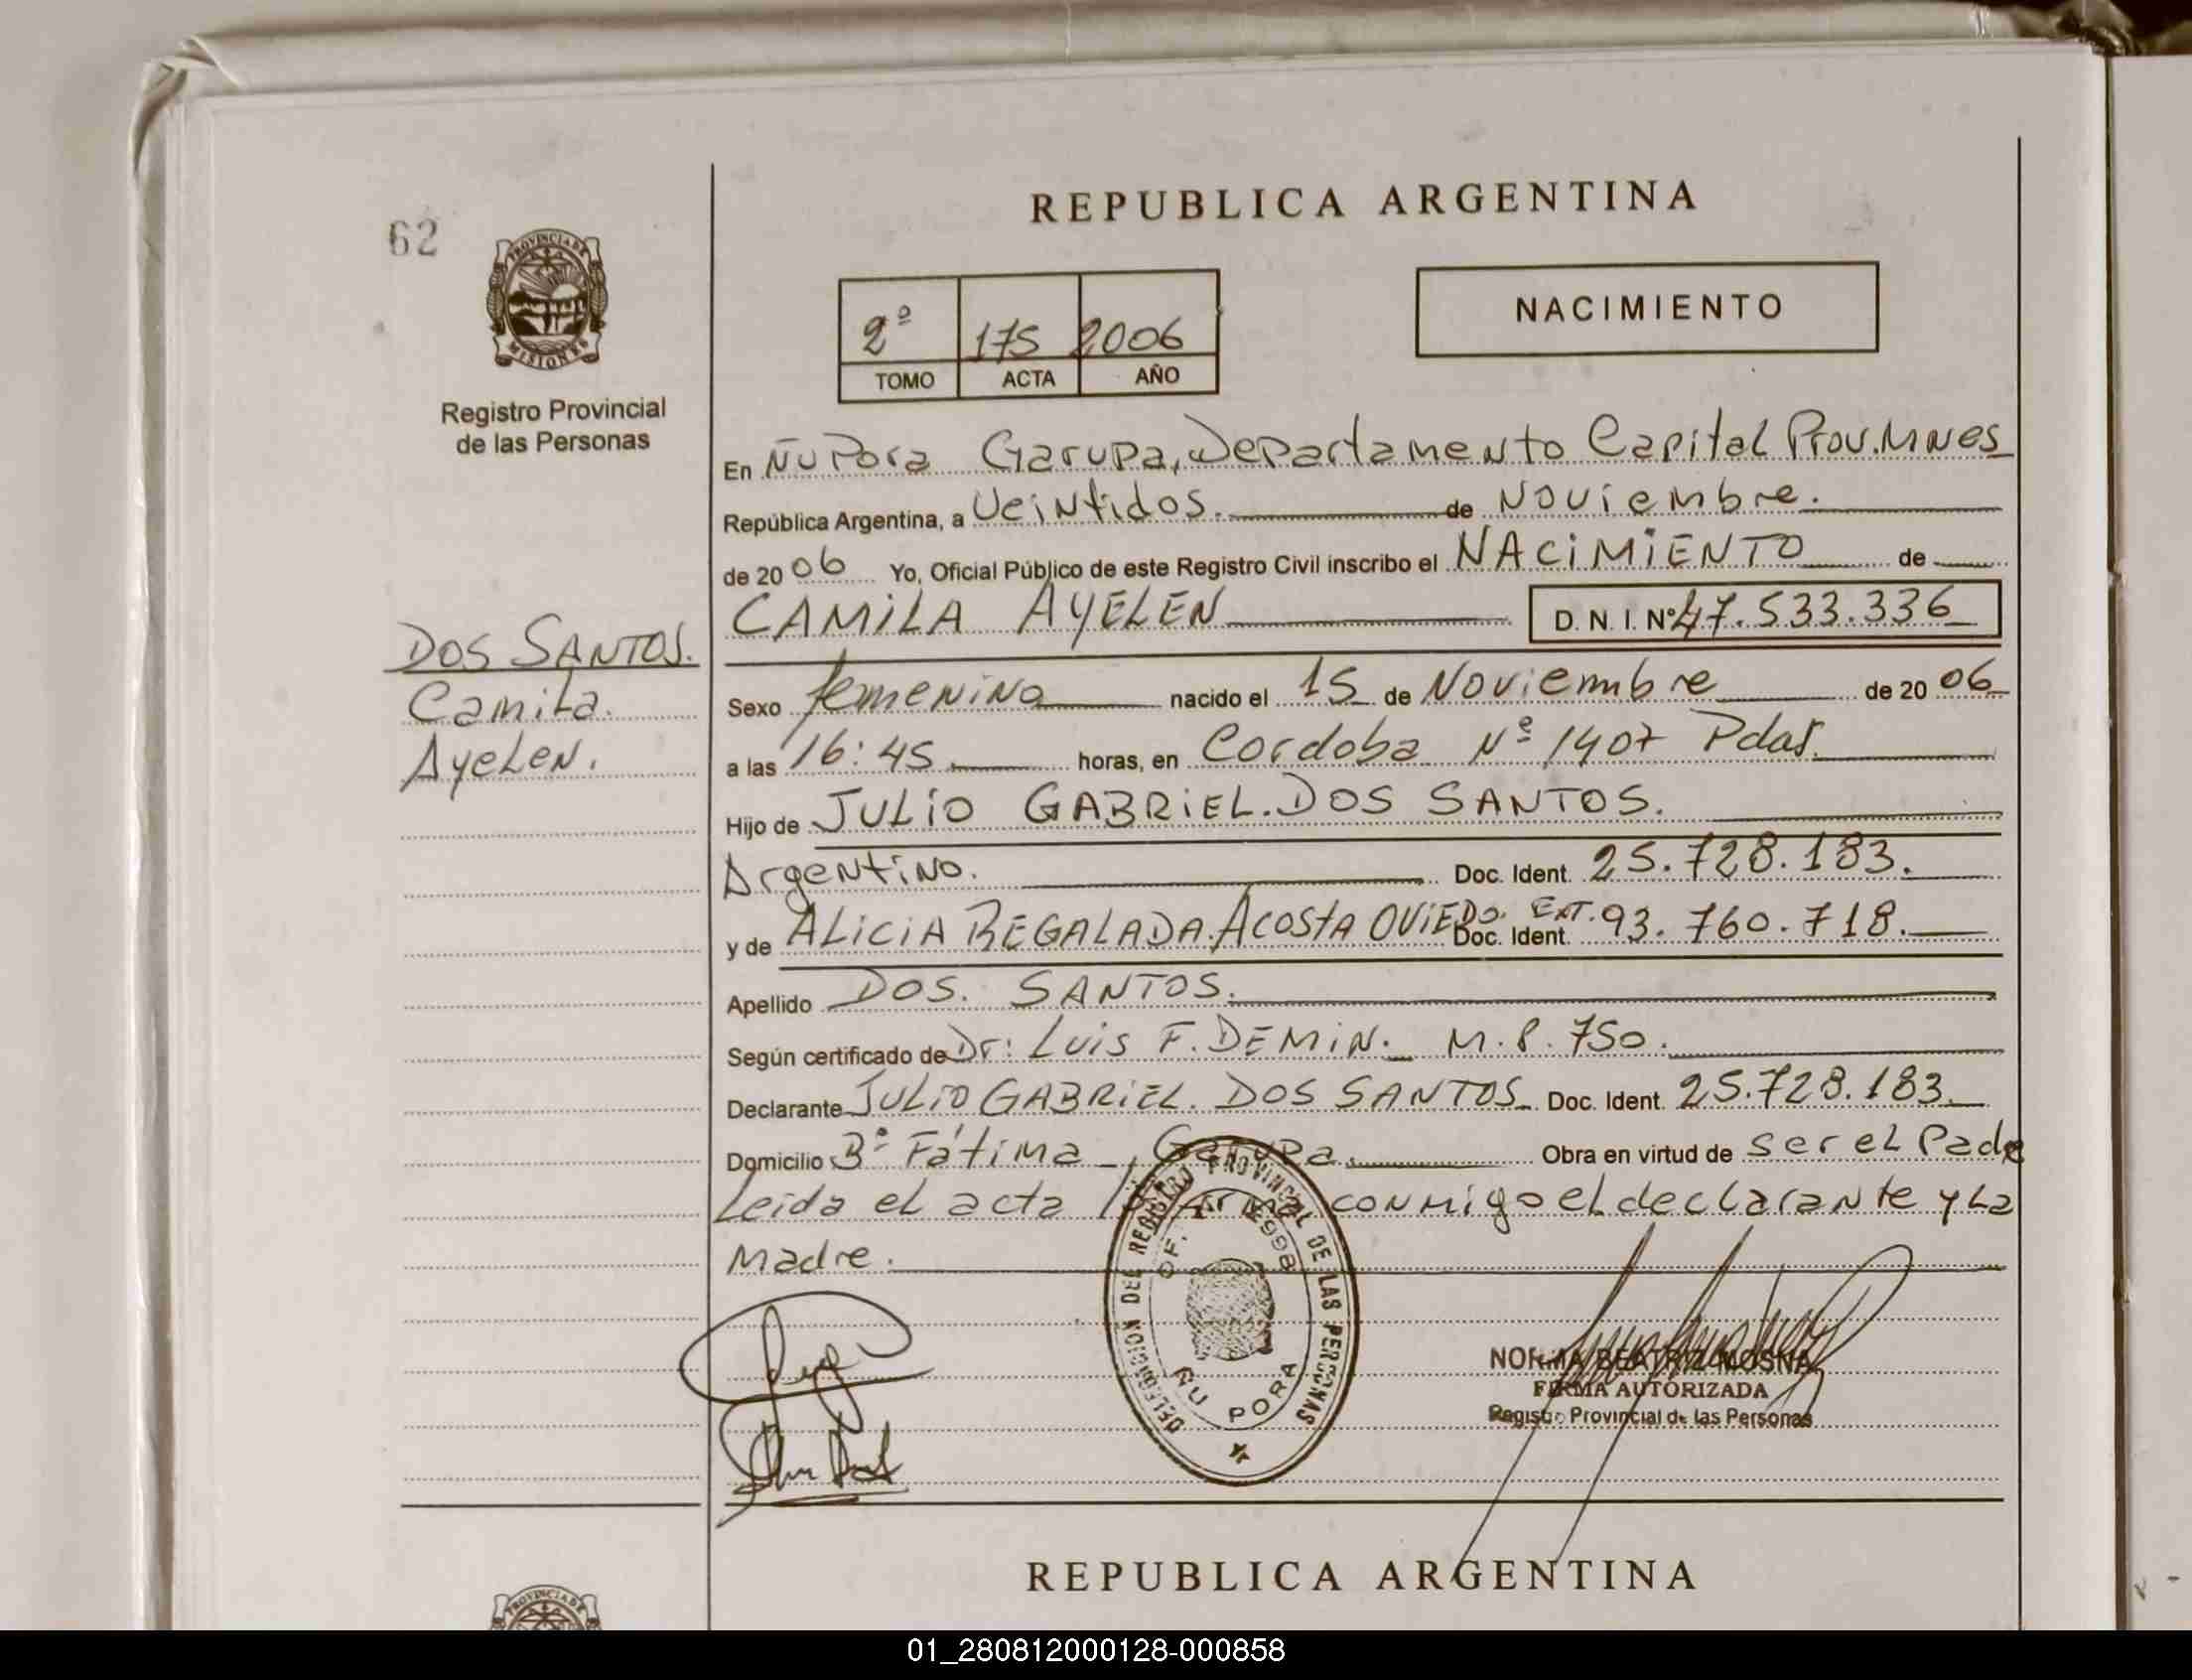 REPUBLICA ARGENTINA
62
PROVINCIA DE
MISIONES
Registro Provincial
de las Personas
NACIMIENTO
2º 175 2006
TOMO ACTA AÑO
En Ñu Pora Garupa, Departamento Capital Prov. Mnes
República Argentina, a Veintidos. de Noviembre.
de 2006 Yo, Oficial Público de este Registro Civil inscribo el NACIMIENTO de
CAMILA AYELEN D. N. I. Nº 47.533.336
DOS SANTOS.
Camila.
Ayelen.
Sexo femenino nacido el 15 de Noviembre de 2006
a las 16:45 horas, en Cordoba Nº 1407 Pdas.
Hijo de JULIO GABRIEL. DOS SANTOS.
Argentino. Doc. Ident. 25.728.183.
y de ALICIA REGALADA. ACOSTA OVIEDO. Doc. Ident. EXT. 93.760.718.
Apellido DOS. SANTOS.
Según certificado de Dr: Luis F. DEMIN. M.P. 750.
Declarante JULIO GABRIEL. DOS SANTOS Doc. Ident. 25.728.183.
Domicilio Bº Fátima, Garupa. Obra en virtud de ser el Padre
Leida el acta la firma conmigo el declarante y La
Madre.
DELEGACION DEL REGISTRO PROVINCIAL DE LAS PERSONAS
OF.
ÑU PORA
NORMA BEATRIZ MOSNA
FIRMA AUTORIZADA
Registro Provincial de las Personas
REPUBLICA ARGENTINA
PROVINCIA DE
01_280812000128-000858